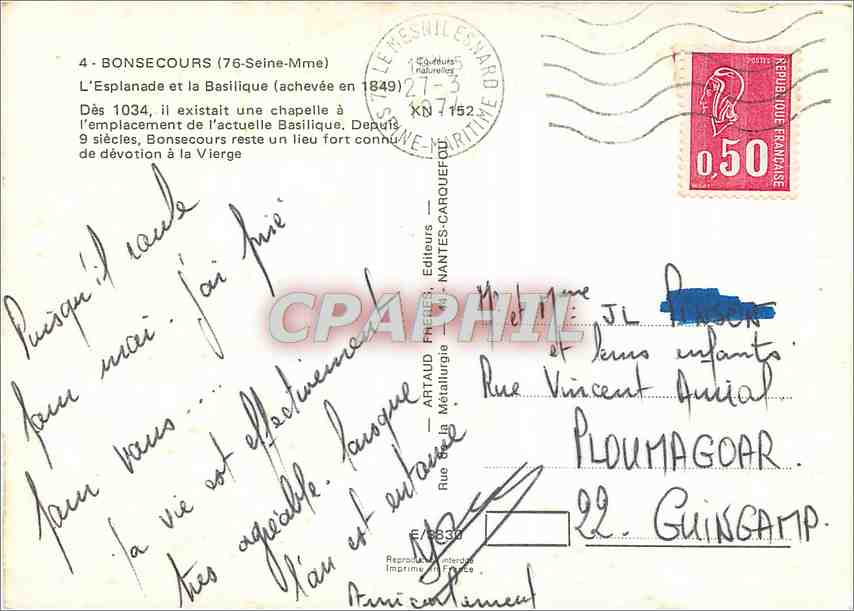 4 - BONSECOURS (76-Seine-Mme)
L'Esplanade et la Basilique (achevée en 1849)
Dès 1034, il existait une chapelle à
l'emplacement de l'actuelle Basilique. Depuis
9 siècles, Bonsecours reste un lieu fort connu
de dévotion à la Vierge
Couleurs
naturelles
XN - 152
76 LE MESNIL ESNARD
27-5
SEINE-MARITIME
POSTES
RÉPUBLIQUE FRANÇAISE
0,50
Puisqu'il roule
pour moi. j'ai prié
pour vous....
la vie est effectivement
très agréable. lorsque
l'on est entouré.
Amicalement
CPAPHIL
— ARTAUD FRÈRES, Editeurs —
Rue de la Métallurgie — 44 - NANTES-CARQUEFOU
E/3830
Reproduction interdite
Imprimé en France
Mr et Mme JL
et leurs enfants
Rue Vincent Auriol.
PLOUMAGOAR.
22. GUINGAMP.